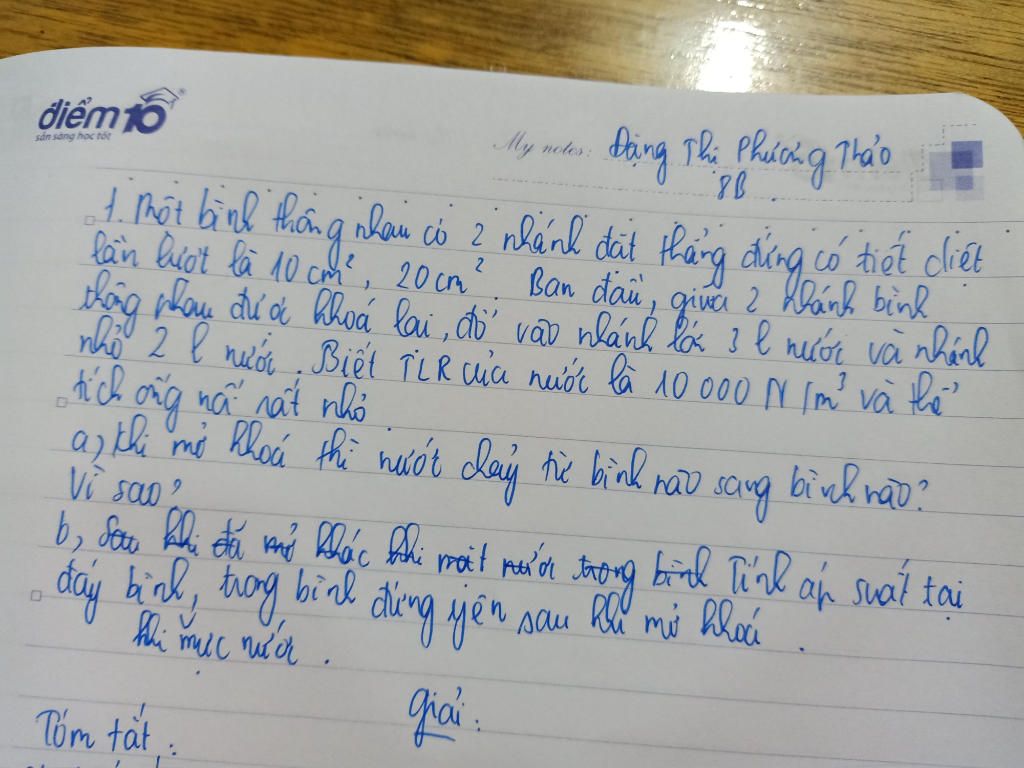 điểm10
sẵn sàng học tốt
My notes: Đặng Thị Phương Thảo
8B.
1. Một bình thông nhau có 2 nhánh đặt thẳng đứng có tiết diện
lần lượt là 10 cm², 20 cm². Ban đầu, giữa 2 nhánh bình
thông nhau được khoá lại, đổ vào nhánh lớn 3 l nước và nhánh
nhỏ 2 l nước. Biết TLR của nước là 10 000 N/m³ và thể
tích ống nối rất nhỏ.
a, Khi mở khoá thì nước chảy từ bình nào sang bình nào?
Vì sao?
b, Sau khi đã mở khác khi mặt nước trong bình Tính áp suất tại
đáy bình, trong bình đứng yên sau khi mở khoá.
khi mực nước.
Giải:
Tóm tắt: